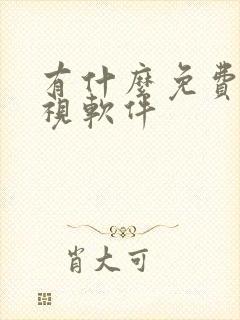 有什麼免費
視軟件
肖大可